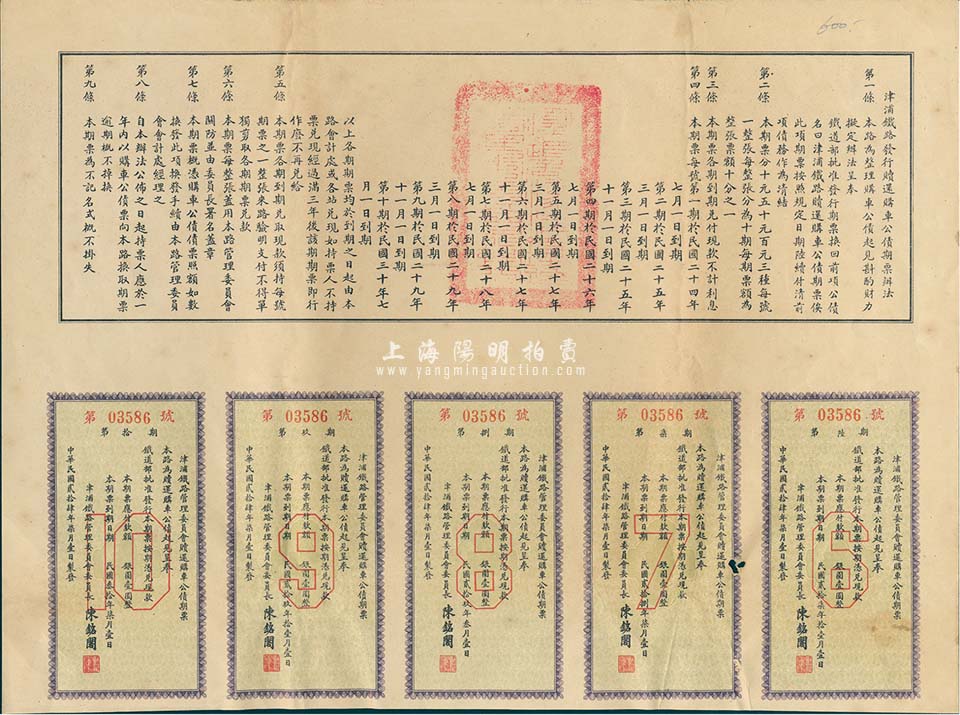 600-
津浦鐵路發行贖還購車公債期票辦法
第一條 本路為整理購車公債起見斟酌財力
擬定辦法呈奉
鐵道部批准發行期票換回前項公債
名曰津浦鐵路贖還購車公債期票俟
此項期票按照規定日期陸續付清前
項債務作為清結
第二條 本期票分十元五十元百元三種每號
一整張每整張分為十期每期票額為
整張票額十分之一
第三條 本期票各期到期兑付現款不計利息
第四條 本期票每號第一期於民國二十四年
七月一日到期
第二期於民國二十五年
三月一日到期
第三期於民國二十五年
十一月一日到期
第四期於民國二十六年
七月一日到期
第五期於民國二十七年
三月一日到期
第六期於民國二十七年
十一月一日到期
第七期於民國二十八年
七月一日到期
第八期於民國二十九年
三月一日到期
第九期於民國二十九年
十一月一日到期
第十期於民國三十年七
月一日到期
以上各期期票均於到期之日起由本
路會計處或各站兑現如持票人不持
票兑現經過滿三年後該期期票即行
作廢不再兑給
第五條 本期票各期到期兑取現款須持每號
期票之一整張來路驗明支付不得單
獨剪取各期期票兑款
第六條 本期票每整張蓋用本路管理委員會
關防並由委員長署名蓋章
第七條 本期票概憑購車公債債票照額如數
換發此項換發手續由本路管理委員
會會計處經理
第八條 自本辦法公佈之日起持票人應於一
年內以購車公債票向本路換取期票
逾期概不掉換
第九條 本期票為不記名式概不掛失
上海陽明拍賣
www.yangmingauction.com
第 03586 號
第陸期
津浦鐵路管理委員會贖還購車公債期票
本路為贖還購車公債起見呈奉
鐵道部批准發行本期票按期憑兑現款
本期票應付款額 銀圓壹圓整
本期票到期日期 民國貳拾柒年拾壹月壹日
津浦鐵路管理委員會委員長 陳銘閣
中華民國貳拾肆年柒月壹日製發
6
第 03586 號
第柒期
津浦鐵路管理委員會贖還購車公債期票
本路為贖還購車公債起見呈奉
鐵道部批准發行本期票按期憑兑現款
本期票應付款額 銀圓壹圓整
本期票到期日期 民國貳拾捌年柒月壹日
津浦鐵路管理委員會委員長 陳銘閣
中華民國貳拾肆年柒月壹日製發
7
第 03586 號
第捌期
津浦鐵路管理委員會贖還購車公債期票
本路為贖還購車公債起見呈奉
鐵道部批准發行本期票按期憑兑現款
本期票應付款額 銀圓壹圓整
本期票到期日期 民國貳拾玖年叁月壹日
津浦鐵路管理委員會委員長 陳銘閣
中華民國貳拾肆年柒月壹日製發
8
第 03586 號
第玖期
津浦鐵路管理委員會贖還購車公債期票
本路為贖還購車公債起見呈奉
鐵道部批准發行本期票按期憑兑現款
本期票應付款額 銀圓壹圓整
本期票到期日期 民國貳拾玖年拾壹月壹日
津浦鐵路管理委員會委員長 陳銘閣
中華民國貳拾肆年柒月壹日製發
9
第 03586 號
第拾期
津浦鐵路管理委員會贖還購車公債期票
本路為贖還購車公債起見呈奉
鐵道部批准發行本期票按期憑兑現款
本期票應付款額 銀圓壹圓整
本期票到期日期 民國叁拾年柒月壹日
津浦鐵路管理委員會委員長 陳銘閣
中華民國貳拾肆年柒月壹日製發
10